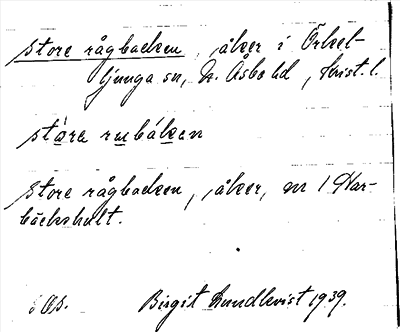 store rågbacken, åker i Örkel-
ljunga sn, N. Åsbo hd, Krist. l.
stòra rubákan
store rågbacken, åker, nr 1 Har-
bäckshult.
Birgit Lundkvist 1939.